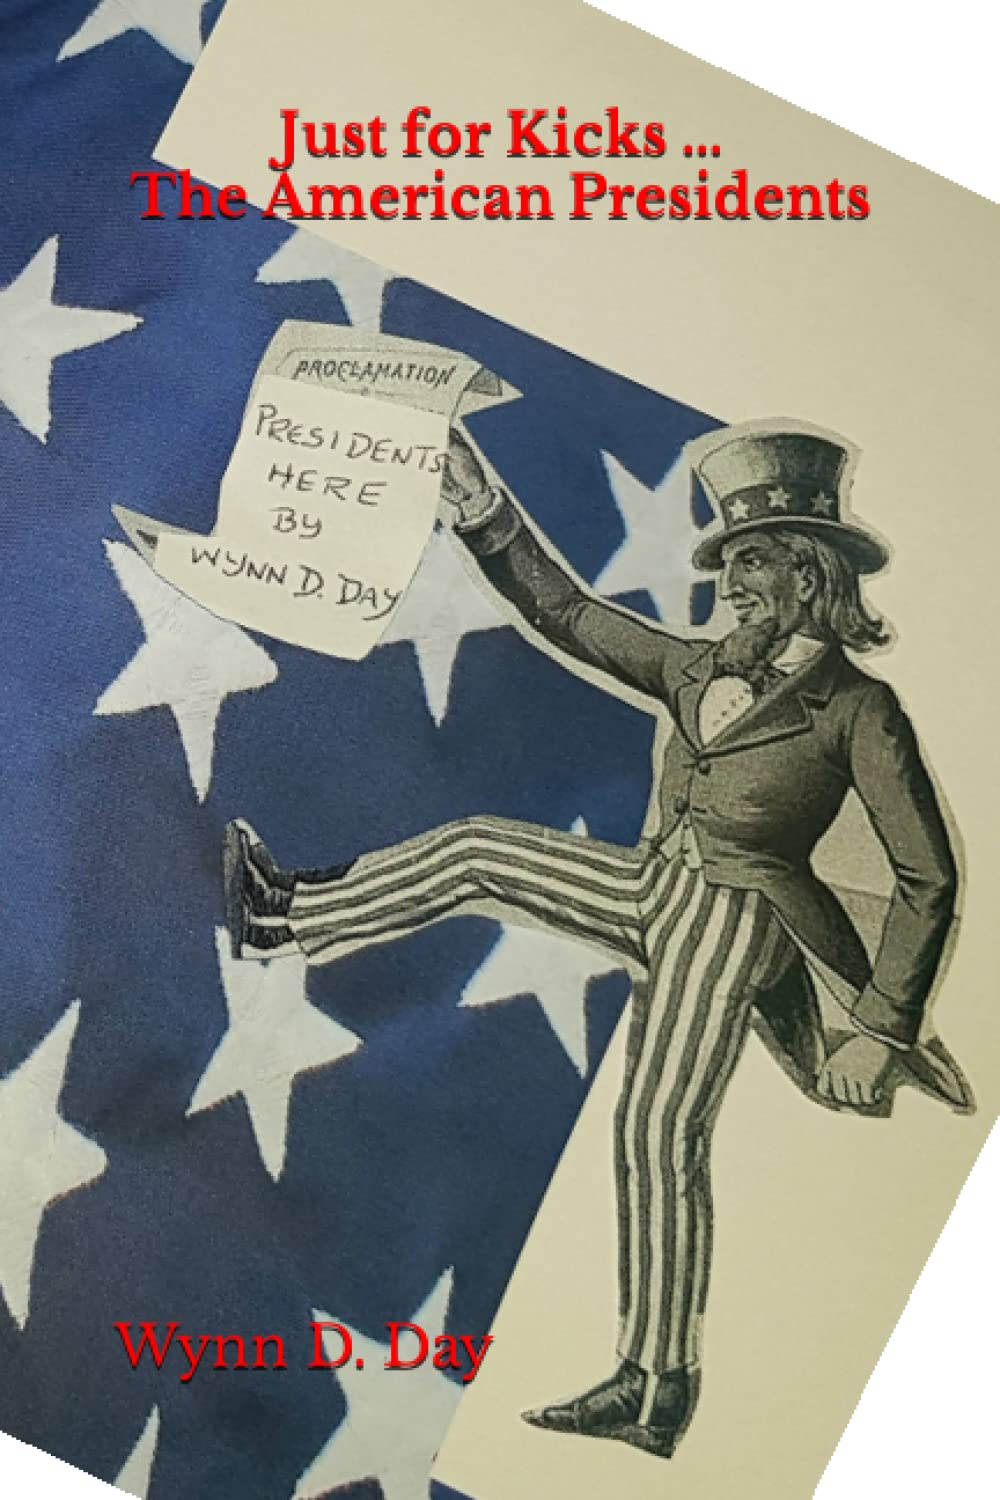 Just for Kicks ...
The American Presidents
PROCLAMATION
PRESIDENTS
HERE
BY
WYNN D. DAY
Wynn D. Day